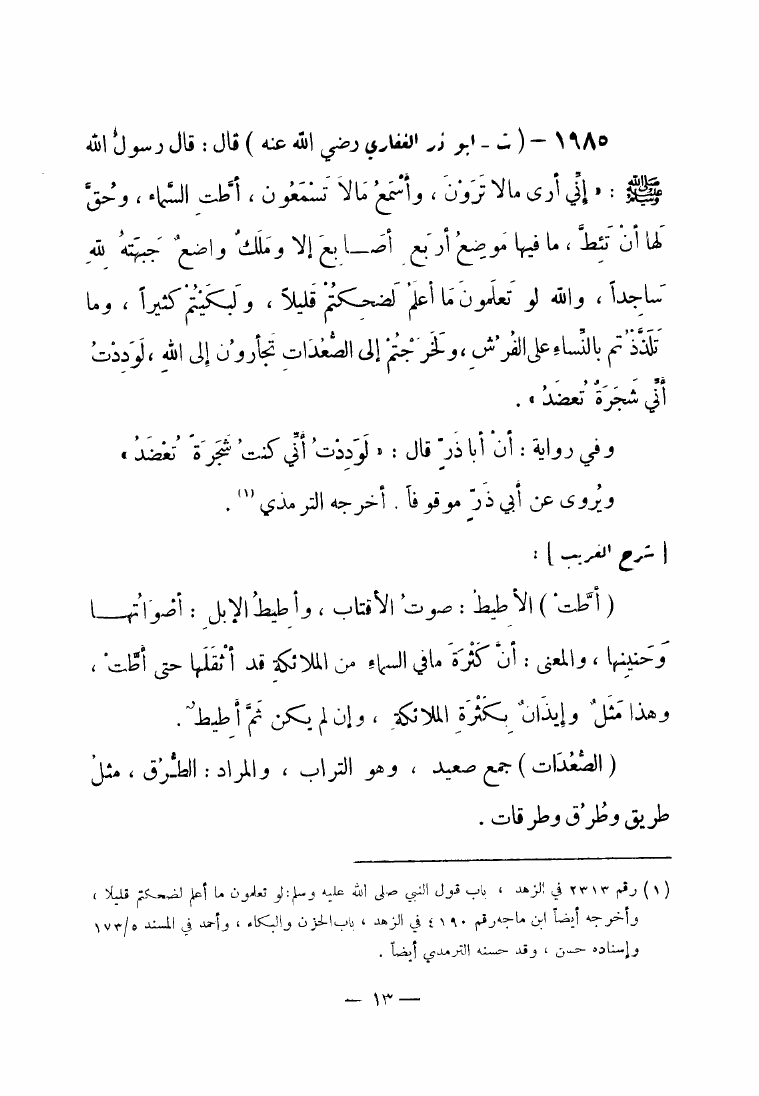 ١٩٨٥ – ( ت - ابو ذر الغفاري رضي الله عنه ) قال : قال رسولُ الله
ﷺ : « إِنِّي أرى مالا تَرَوْنَ ، وأسْمَعُ مَالاَ تَسْمَعُون ، أَطَّتِ السَّماء ، وحُقَّ
لها أنْ تَئِطَّ ، ما فيها مَوضِعُ أربَعِ أصَـابِعَ إلا ومَلَكٌ واضعٌ جَبهَتَهُ لِلّهِ
سَاجداً ، والله لو تَعلَمونَ مَا أعلمُ لَضحِكتُمْ قليلاً ، ولَبكَيْتُمْ كثيراً ، وما
تَلَذَّذْتم بالنِّساءِ على الفُرُشِ ، ولَخَرَجْتُمْ إلى الصُّعُدَاتِ تَجأرونَ إلى اللهِ ، لَوَدِدْتُ
أنِّي شَجَرَةٌ تُعضَدُ » .
وفي رواية : أنَّ أبا ذَرّ قال : « لَوَدِدْتُ أنِّي كنتُ شَجَرَةً تُعْضَدُ »
ويُروى عن أبي ذَرّ موقوفاً . أخرجه الترمذي (١) .
[ شرح الغريب ] :
( أطَّتْ ) الأطيطُ : صوتُ الأقتاب ، وأطيطُ الإبلِ : أصْوَاتُهـا
وَحَنينها ، والمعنى : أنَّ كَثْرَةَ مافي السماءِ من الملائكةِ قد أثْقَلَها حتى أطَّتْ ،
وهذا مَثَلٌ وإيذَانٌ بِكَثْرَةِ الملائكةِ ، وإن لم يكن ثَمَّ أطيطٌ .
( الصُّعُدَات ) جمع صعيد ، وهو التراب ، والمراد : الطُّرُق ، مثلُ
طريق وطُرُق وطرقات .
(١) رقم ٢٣١٣ في الزهد ، باب قول النبي صلى الله عليه وسلم : لو تعلمون ما أعلم لضحكتم قليلا ،
وأخرجه أيضاً ابن ماجه رقم ٤١٩٠ في الزهد ، باب الحزن والبكاء ، وأحمد في المسند ١٧٣/٥
وإسناده حسن ، وقد حسنه الترمدي أيضاً .
— ١٣ —